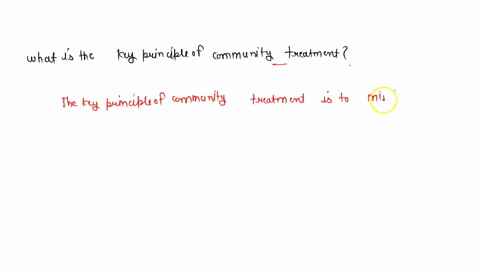 what is the key principle of community treatment?
The key principle of community treatment is to